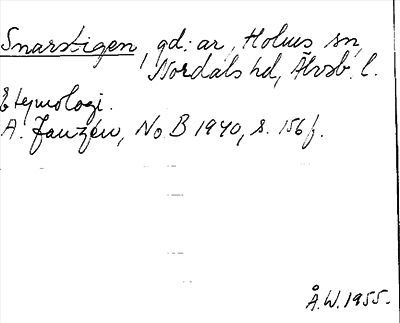 Snarstigen, gd:ar, Holms sn,
Nordals hd, Älvsb. l.
Etymologi.
A. Janzén, NoB 1940, s. 156 f.
Å.W. 1955.